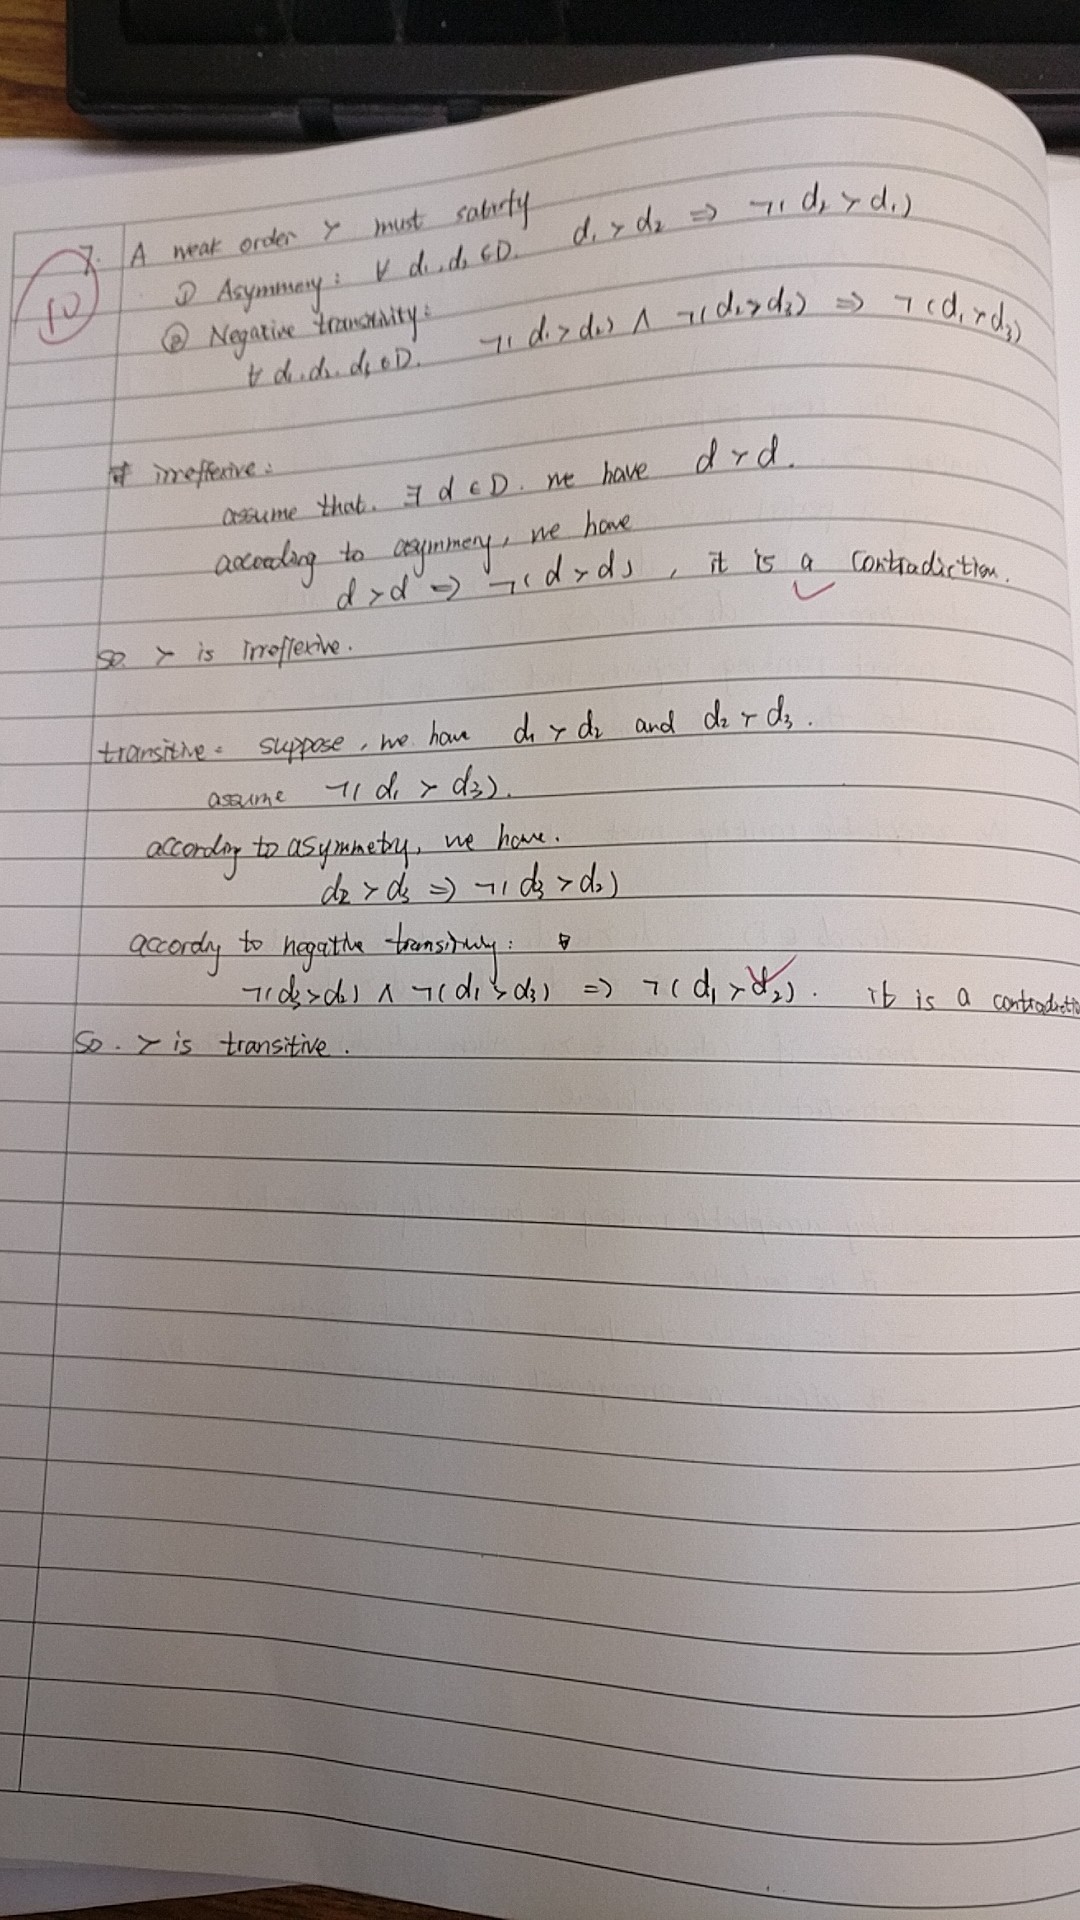 10
7. A weak order ≻ must satisfy
① Asymmery: ∀ d₁,d₂ ∈D. d₁ ≻ d₂ ⇒ ¬( d₂ ≻ d₁)
② Negative transitivity:
∀ d₁.d₂.d₃ ∈D. ¬( d₁ ≻ d₂) ∧ ¬(d₂ ≻ d₃) ⇒ ¬(d₁ ≻ d₃)
irreflexive:
assume that. ∃ d ∈ D. we have d ≻ d.
according to asymmery, we have
d ≻ d ⇒ ¬( d ≻ d) , it is a contradiction.
so ≻ is irreflexive.
transitive: suppose, we have d₁ ≻ d₂ and d₂ ≻ d₃.
assume ¬( d₁ ≻ d₃).
according to asymmetry, we have.
d₂ ≻ d₃ ⇒ ¬( d₃ ≻ d₂)
accordy to negative transitivity:
¬(d₃ ≻ d₂) ∧ ¬(d₁ ≻ d₃) ⇒ ¬( d₁ ≻ d₂). it is a contradictio
So. ≻ is transitive.